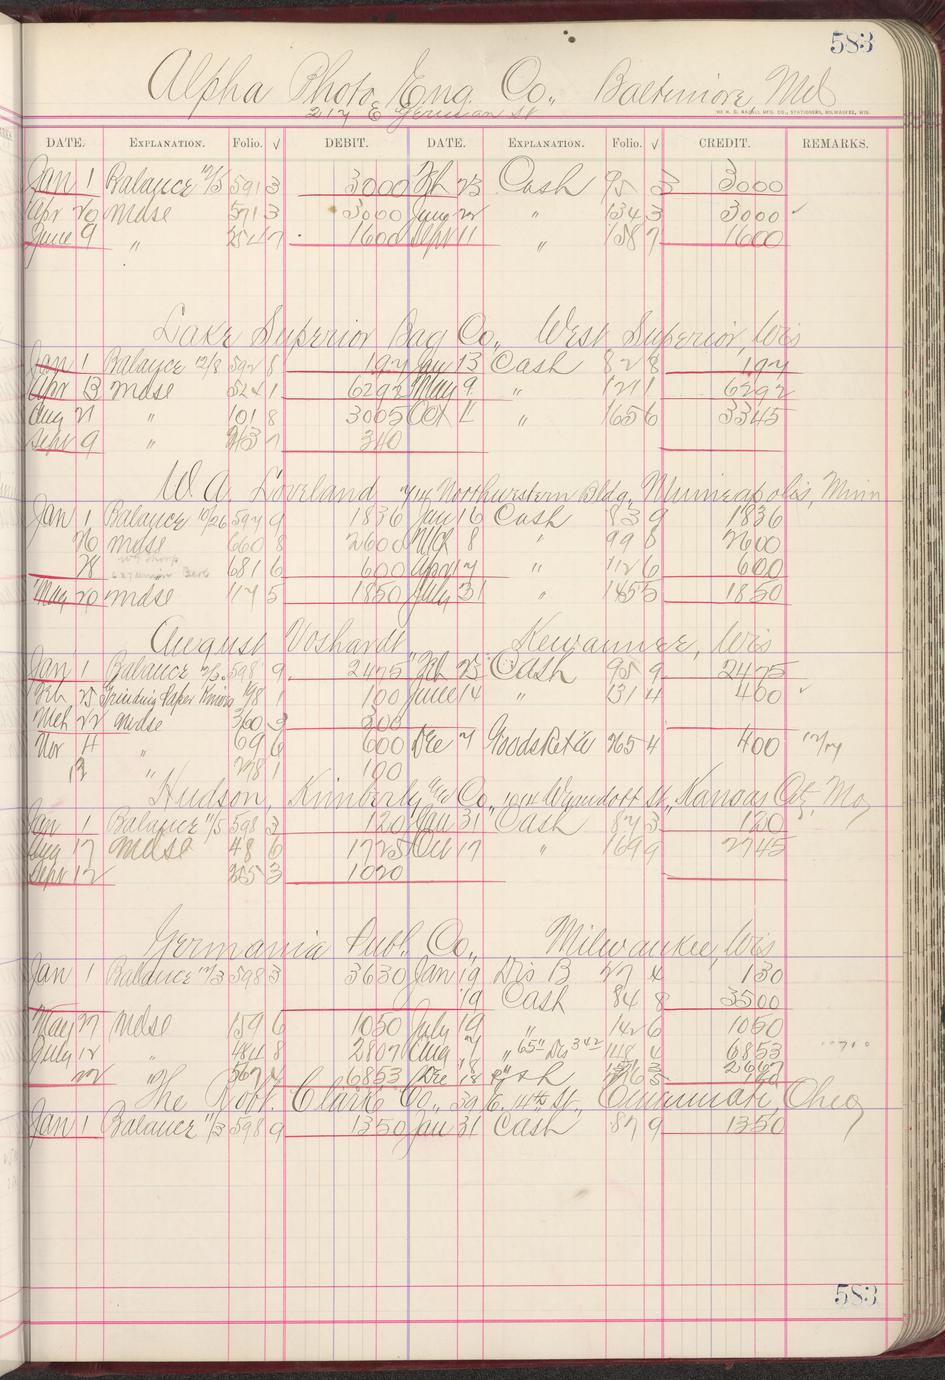 583
Alpha Photo Eng. Co., Baltimore, Md
217 E German St
DATE. EXPLANATION. Folio. √ DEBIT. DATE. EXPLANATION. Folio. √ CREDIT. REMARKS.
Jan 1 Balance 12/5 591 3 3000 Feb 23 Cash 95 3 3000
Apr 20 mdse 571 3 3000 June 22 " 134 3 3000 ✓
June 9 " 254 7 1600 Sept 11 " 158 7 1600
Lake Superior Bag Co., West Superior, Wis
Jan 1 Balance 12/8 592 8 197 Jan 13 Cash 82 8 197
Apr 13 mdse 524 1 6292 May 9 " 121 1 6292
Aug 21 " 101 8 3005 Oct 11 " 165 6 3345
Sept 9 " 7 340
W. A. Loveland 714 Northwestern Bldg. Minneapolis, Minn
Jan 1 Balance 10/26 597 9 1836 Jan 16 Cash 83 9 1836
20 mdse 660 8 2600 Mch 8 " 99 8 2600
28 " 681 6 600 Apr 7 " 112 6 600
May 20 mdse 117 5 1850 July 31 " 145 5 1850
August Voshardt, Kewaunee, Wis
Jan 1 Balance 598 9 2475 Feb 25 Cash 95 9 2475
Feb 25 Grinding Paper Knives 98 1 100 June 14 " 131 4 400 ✓
Mch 22 mdse 360 3 300
Nov 4 " 69 6 600 Dec 7 Goods Ret'd 265 4 400
12 " 278 1 100
Hudson, Kimberly Co., 1014 Wyandott St., Kansas City, Mo
Jan 1 Balance 11/5 598 3 120 Jan 31 Cash 87 3 120
Aug 17 mdse 48 6 1725 Oct 17 " 169 9 2745
Sept 12 3 1020
Germania Publ. Co., Milwaukee, Wis
Jan 1 Balance 12/3 598 3 3630 Jan 19 Dis B 27 4 130
19 Cash 84 8 3500
May 27 mdse 159 6 1050 July 19 " 142 6 1050
July 12 " 484 8 2807 Aug 7 " 4 6853
22 " 567 4 6853 Dec 18
The Robt. Clarke Co., 39 E. 4th St., Cincinnati, Ohio
Jan 1 Balance 11/3 598 9 1350 Jan 31 Cash 87 9 1350
583